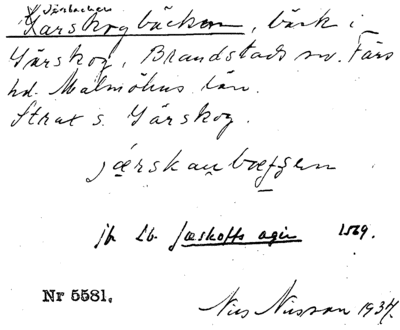 Järbäcken
Karskogbäcken, bäck i
Gärskog, Brandstads sn. Färs
hd. Malmöhus län.
Strax s. Gärskog.
jærskaubæʃʃen
jfr Lb. Jæskoffs agir 1569.
Nr 5581.
Nils Nilsson 1934.